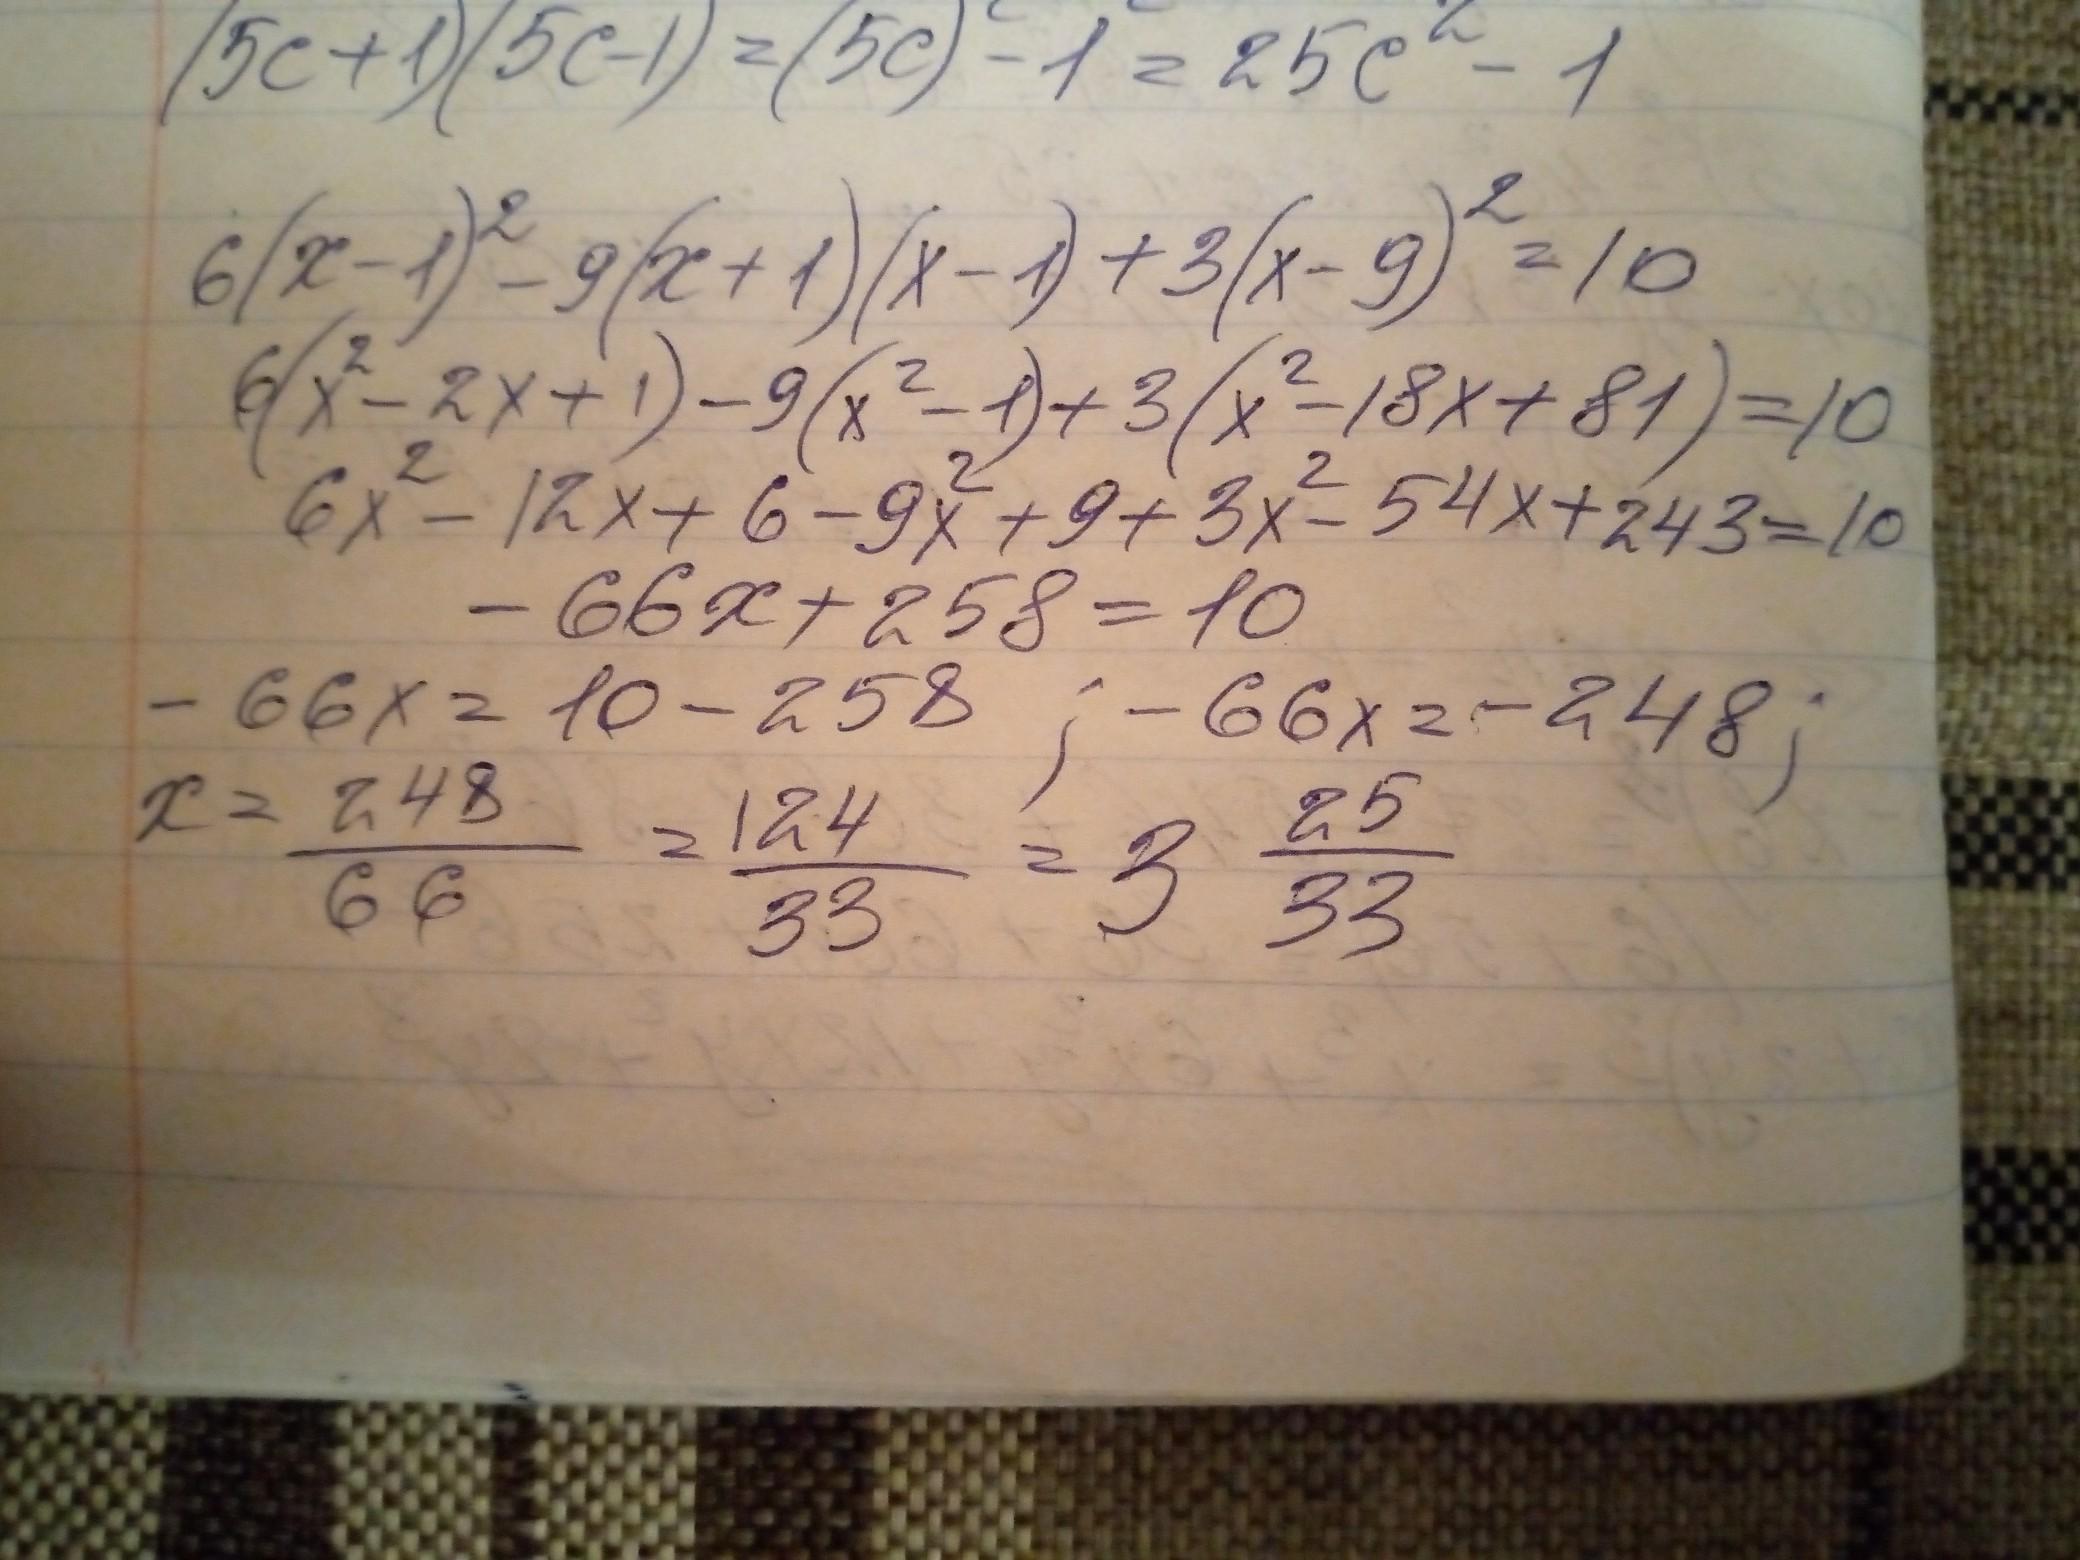 (5c+1)(5c-1)=(5c)²-1²=25c²-1
6(x-1)²-9(x+1)(x-1)+3(x-9)²=10
6(x²-2x+1)-9(x²-1)+3(x²-18x+81)=10
6x²-12x+6-9x²+9+3x²-54x+243=10
-66x+258=10
-66x=10-258; -66x=-248;
x=248/66=124/33=3 25/33